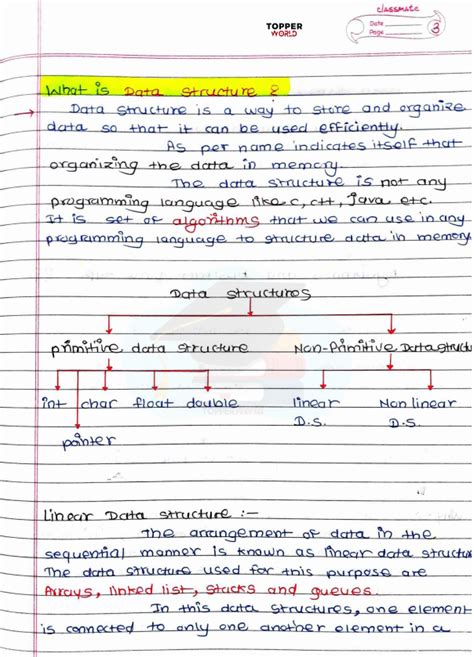 classmate
TOPPER
WORLD
Date
Page 3
What is Data structure ?
Data structure is a way to store and organize
data so that it can be used efficiently.
As per name indicates itself that
organizing the data in memory.
The data structure is not any
programming language like C, C++, Java etc.
It is set of algorithms that we can use in any
programming language to structure data in memory
Data structures
primitive data structure Non-Primitive Data struct
int char float double linear Non linear
D.S. D.S.
pointer
Linear Data structure :-
The arrangement of data in the
sequential manner is known as linear data structur
The data structure used for this purpose are
Arrays, linked list, stacks and queues.
In this data structures, one element
is connected to only one another element in a